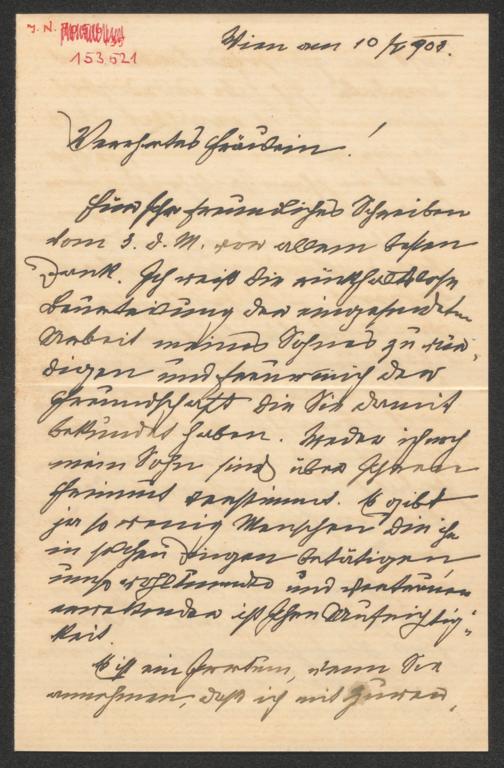 J. N.
153.521
Wien am 10/ 908.
Verehrtes Fräulein!
Für Ihr freundliches Schreiben
vom 3. d. M. vor allem besten
Dank. Ich weiß die rückhaltlose
Beurteilung der eingesendeten
Arbeit meines Sohnes zu wür-
digen und freue mich der
Freundschaft die Sie damit
bekundet haben. Weder ich noch
mein Sohn sind über Ihren
Freimut verstimmt. Es gibt
ja so wenig Menschen die ihn
in solchen Dingen betätigen
umso wohltuender und vertrauen
erweckender ist Ihre Aufrichtig-
keit.
Es ist ein Irrtum, wenn Sie
annehmen, daß ich mit